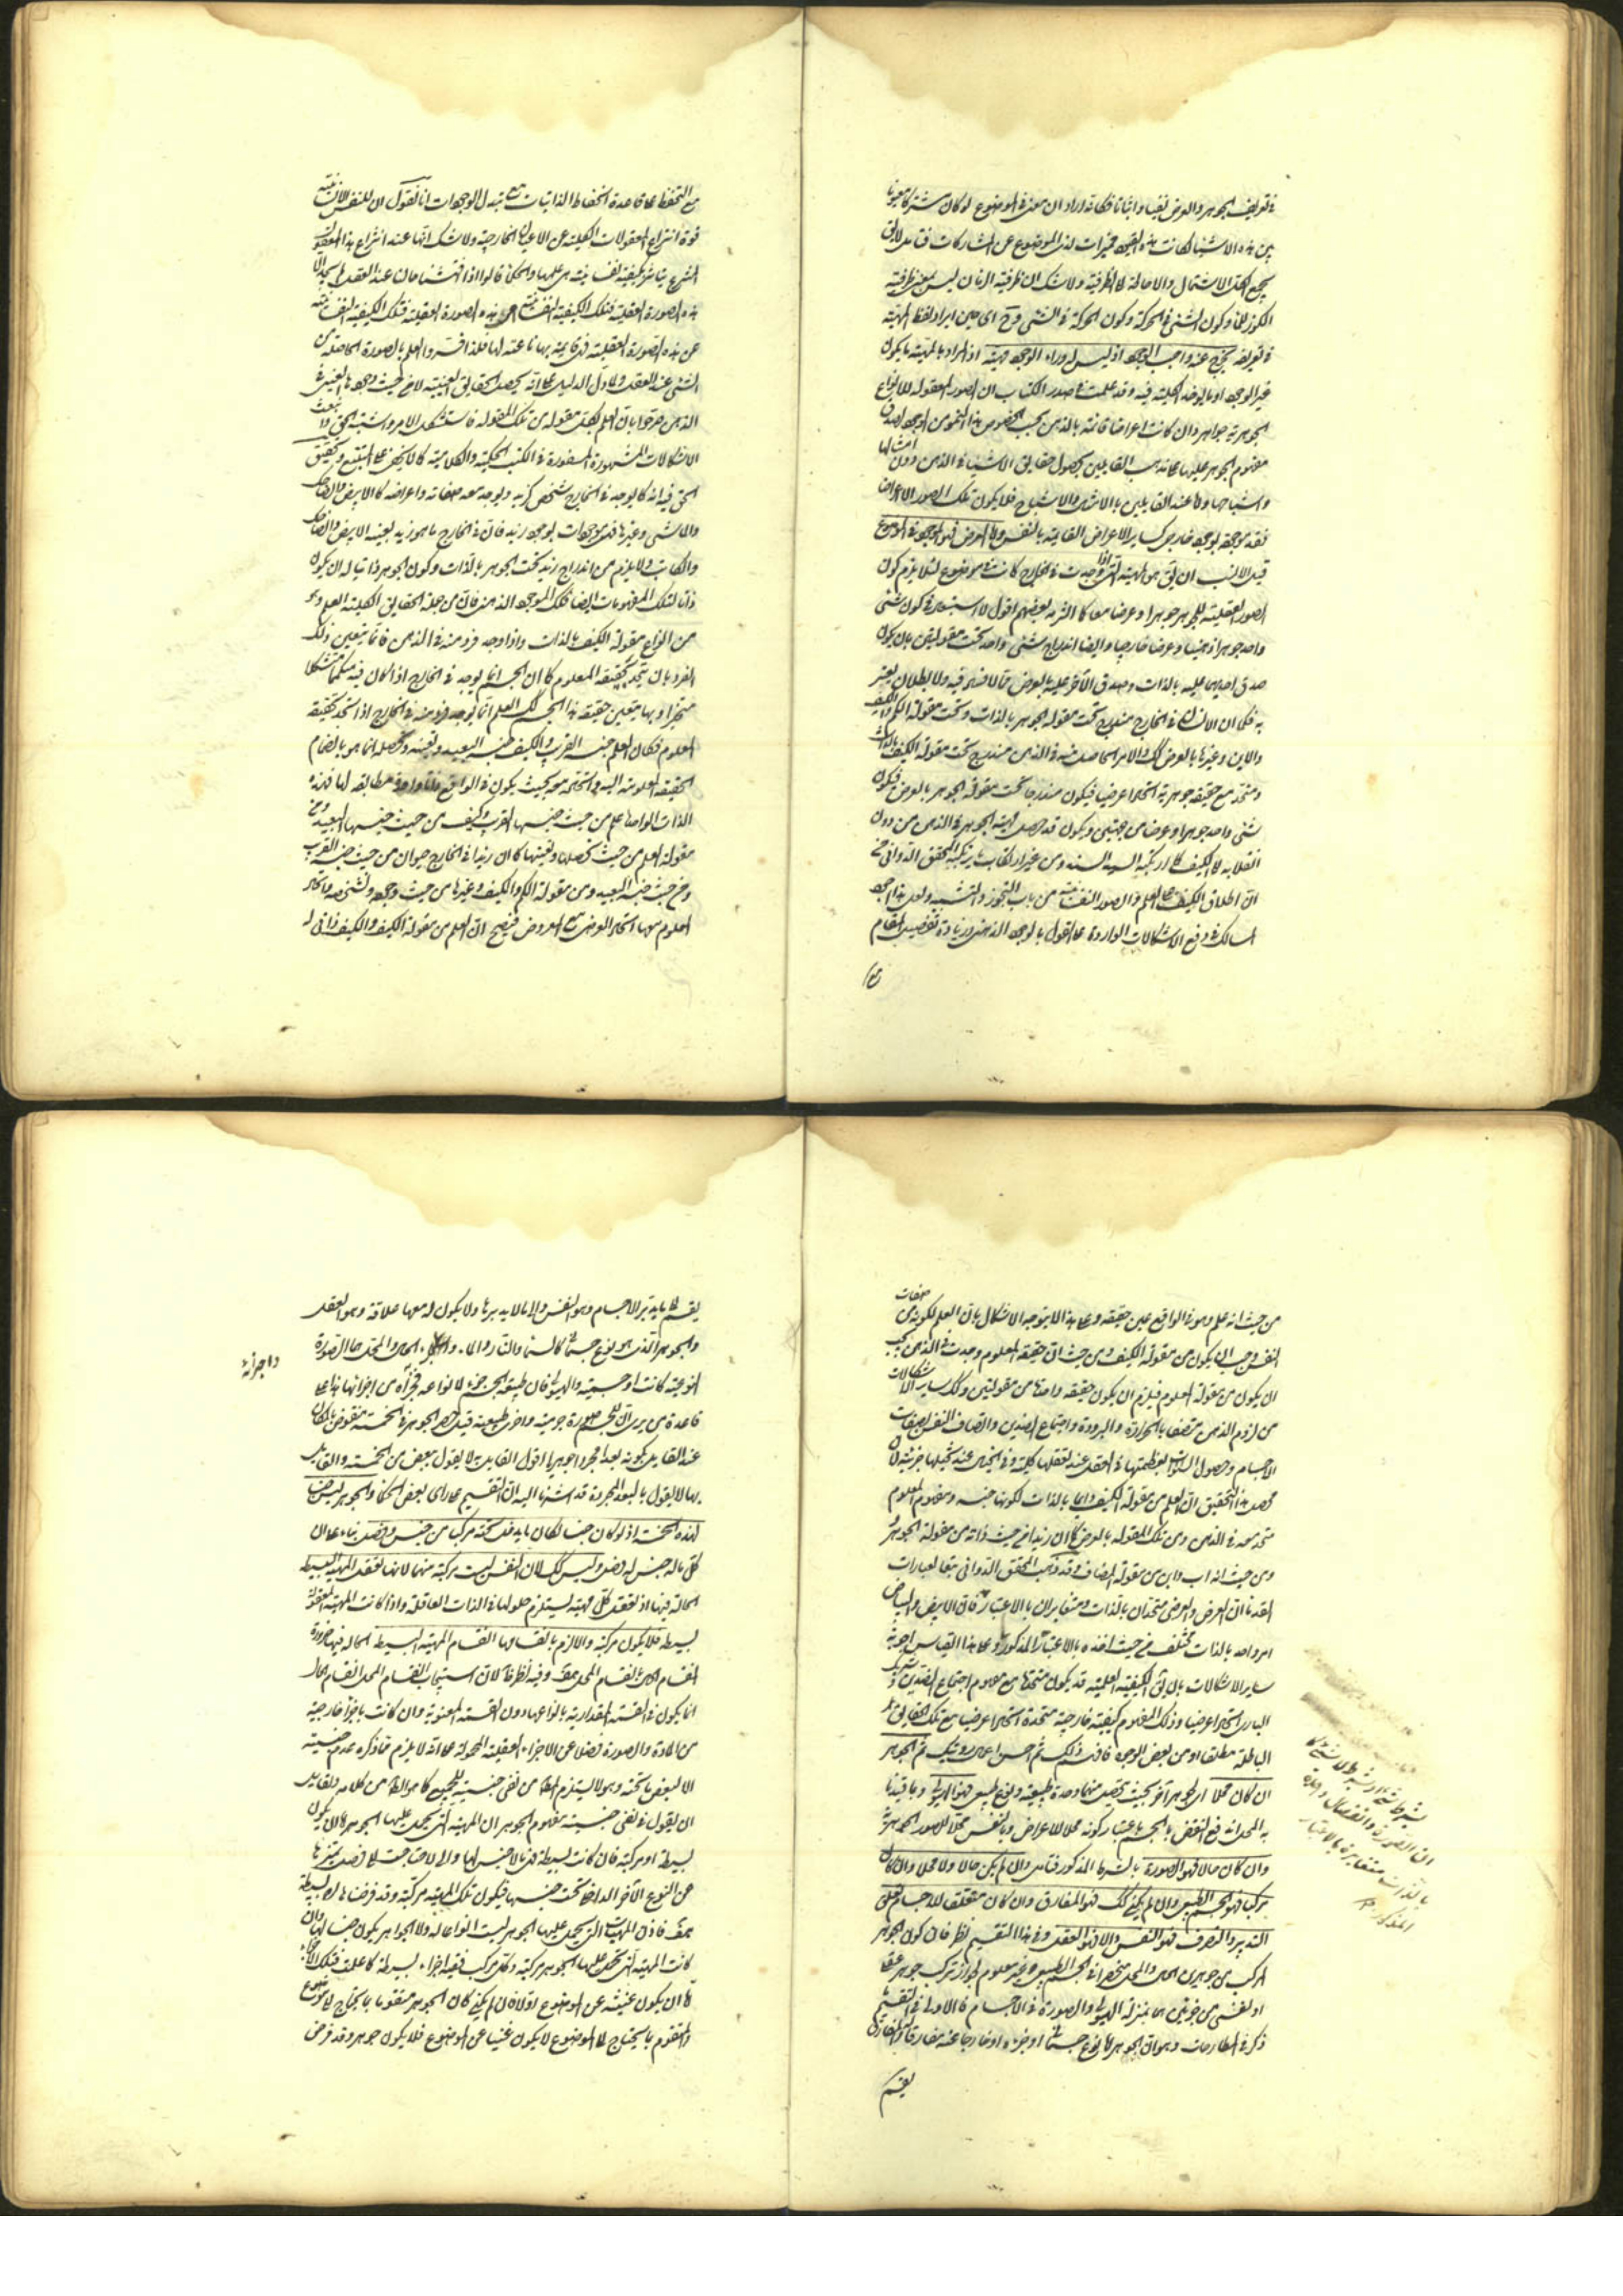 في تعريف الجوهر والعرض نفيا واثباتا فكانه اراد ان معنى في الموضوع لو كان مشتركا معنويا
بين هذه الاشياء لكانت هذه القيود مميزات لذى الموضوع عن المشاركات فتامل لا يق
يجمع الكل الاشتمال والاحاطة او الظرفية ولا شك ان ظرفية الزمان ليس بمعنى ظرفية
الكوز للماء وكون الشئ في الحركة وكون الحركة في الشئ وح اى حين ايراد لفظ المهية
في تعريفه يخرج عنه واجب الوجود اذ ليس له وراء الوجود مهية اذ المراد بالمهية ما يكون
غير الوجود او ما يعرضه الكلية فيه وقد علمت في صدر الكتاب ان الصور المعقولة للانواع
الجوهرية جواهر وان كانت اعراضا قائمة بالذهن بحسب خصوص هذا النحو من الوجود لصدق
مفهوم الجوهر عليها على مذهب القائلين بحصول حقايق الاشياء في الذهن دون امثالها
واشباحها واما عند القائلين بالامثال والاشباح فلا يكون تلك الصور الا اعراضا
فقد موجودة بوجود خارجى كساير الاعراض القائمة بالنفس واما العرض فهو الموجود في الموضوع
قيل الانسب ان يق هو المهية التى اذا وجدت في الخارج كانت في موضوع لئلا يلزم كون
الصور العقلية للجوهر جوهرا وعرضا معا كما التزمه بعضهم اقول لا استبعاد في كون شئ
واحد جوهرا ذهنيا وعرضا خارجيا وايضا اندراج شئ واحد تحت مقولتين بان يكون
صدق احديهما عليه بالذات وصدق الاخرى عليه بالعرض مما لا فساد فيه ولا بطلان يعتر
به فكما ان الانسان في الخارج مندرج تحت مقولة الجوهر بالذات وتحت مقولة الكم والكيف
والاين وغيرها بالعرض كك الامر الحاصل منه في الذهن مندرج تحت مقولة الكيف بالذات
ومتحد مع حقيقة جوهرية اتحادا عرضيا فيكون مندرجا تحت مقولة الجوهر بالعرض فيكون
شئ واحد جوهرا وعرضا من جهتين ويكون قد حصل مهية الجوهر في الذهن من دون
انقلابه كالكيف كما ارتكبه السيد السند ومن غير ارتكاب ما يرتكبه المحقق الدوانى من
ان اطلاق الكيف على العلم والصور النفسانية من باب التجوز والتشبيه ولعل هذا اجود
المسالك في دفع الاشكالات الواردة على القول بالوجود الذهنى وزيادة تفصيل المقام
مع التحفظ على قاعدة انحفاظ الذاتيات مع تبدل الوجودات انا نقول ان للنفس الانسانية
قوة انتزاع المعقولات الكلية عن الاعيان الخارجية ولا شك انها عند انتزاع هذا المعقول
المنتزع يتاثر بكيفية نفسانية هى علمها والحكماء قالوا اذا فتشنا حالنا عند العقل لم نجد الا
هذه الصورة العقلية فتلك الكيفية النفسانية هى هذه الصورة العقلية فتلك الكيفية النفسانية
عن هذه الصورة العقلية فهى قائمة بها ناعتة لها فلذا فسروا العلم بالصورة الحاصلة من
الشئ عند العقل ولما دل الدليل على انه يحصل الحقايق العينية لا من حيث وجودها العينى في
الذهن صرحوا بان العلم بكل مقولة من تلك المقولة فاستشكل الامر واشتبه الحق وانبعث
الاشكالات المشهورة المسفورة في الكتب الحكمية والكلامية كما لا يخفى على المتتبع وتحقيق
الحق فيه انه كما يوجد في الخارج شخص كزيد ويوجد معه صفاته واعراضه كالابيض والضاحك
والماشى وغيرها فهى موجودات بوجود زيد فان في الخارج ما هو زيد بعينه الابيض والضاحك
والكاتب ولا يلزم من اندراج زيد تحت الجوهر بالذات وكون الجوهر ذاتيا له ان يكون
ذاتيا لتلك المفهومات ايضا فكك الموجود الذهنى فان من جملة الحقايق الكلية العلم وهو
من انواع مقولة الكيف بالذات واذا وجد فرد منه في الذهن فانما يتعين ذلك
الفرد بان يتحد بحقيقة المعلوم كما ان الجسم انما يوجد في الخارج اذا كان فيه متكمما متشكلا
متحيزا وبها يتعين حقيقة هذا الجسم كك العلم انما يوجد فرد منه في الخارج اذا اتحد بحقيقة
المعلوم فكان العلم جنسه القريب والكيف جنسه البعيد وتعينه وتحصله انما هو بانضمام
الحقيقة المعلومة اليه واتحاده معه بحيث يكون في الواقع ذاتا واحدة مطابقة لها فهذه
الذات الواحدة علم من حيث جنسها القريب وكيف من حيث جنسها البعيد ومن
مقولة المعلوم من حيث تحصلها وتعينها كما ان زيدا في الخارج حيوان من حيث جنسه القريب
ومن حيث جنسه البعيد ومن مقولة الكم والكيف وغيرها من حيث وجوده وتشخصه واتحد
المعلوم معها اتحاد العرضى مع المعروض فيصح ان العلم من مقولة الكيف والكيف ذاتى له
من حيث انه علم وهو في الواقع عين حقيقة وعلى هذا لا يتوجه الاشكال بان العلم لكونه من صفات
النفس وجب ان يكون من مقولة الكيف ومن حيث ان حقيقة المعلوم وجدت في الذهن يجب
ان يكون من مقولة المعلوم فيلزم ان يكون حقيقة واحدة من مقولتين وكك ساير الاشكالات
من لزوم الذهن متصفا بالحرارة والبرودة واجتماع الضدين واتصاف النفس بصفات
الاجسام وحصول السموات بعظمتها في العقل عند تعقلها كلية وفي الخيال عند تخيلها جزئية لان
محصل هذا التحقيق ان العلم من مقولة الكيف دايما بالذات لكونها جنسه ومفهوم المعلوم
متحد معه في الذهن ومن تلك المقولة بالعرض كما ان زيدا من حيث ذاته من مقولة الجوهر
ومن حيث انه اب وابن من مقولة المضاف وقد ذهب المحقق الدوانى تبعا لعبارات
القدماء ان العرض والعرضى متحدان بالذات ومتغايران بالاعتبار فان الابيض والبياض
امر واحد بالذات مختلف من حيث اخذه بالاعتبار المذكور وعلى هذا القياس اجوبة
ساير الاشكالات بان يق الكيفية العلمية قد يكون متحدة مع مفهوم اجتماع الضدين وشريك
البارى اتحادا عرضيا وذلك المفهوم كيفية خارجية متحدة اتحادا عرضيا مع تلك الحقايق
الباطلة مطلقا او من بعض الوجوه فافهم ذلك ثم الجوهر
ان كان محلا اى لجوهر آخر بحيث يحصل منهما وحدة طبيعية ونوع طبيعى فهو الهيولى وبما قيدنا
به المحل اندفع النقض بالجسم باعتبار كونه محلا للاعراض وبالنفس محلا للصور الجوهرية
وان كان حالا فهو الصورة بالشرط المذكور فتامل وان لم يكن حالا ولا محلا وان كان
مركبا فهو الجسم الطبيعى وان لم يكن كك فهو المفارق وان كان متعلقا للاجسام تعلق
التدبير والتصرف فهو النفس والا فهو العقل وفي هذا التقسيم نظر فان كون الجوهر
المركب من جوهرين الحال والمحل منحصرا في الجسم الطبيعى غير معلوم لجواز تركب جوهر عقلى
او نفسى من جزئين هما بمنزلة الهيولى والصورة في الاجسام فالاولى في التقسيم ما
ذكر في المطارحات وهو ان الجوهر اما نوع جسمانى او جزءه او خارجا عنه مفارقا والمفارق
يقسم
ان الصورة والفصل واحدة
بالذات متغايرة بالاعتبار
المذكور
يقسم الى ما يدبر الاجسام وهو النفس والى ما لا يدبرها ولا يكون له معها علاقة وهو العقل
والجوهر الذى هو نوع جسمانى كالسماء والنار والماء
النوعية كانت او جسمية والهيولى فان طبيعة الجسم جزء لانواعه فجزءه من اجزائها بناء على
واجزائه
قاعدة من يرى ان للجسم صورة جرمية واخرى طبيعية قيل حصر الجوهر في الخمسة منقوض بالمكان
عند القائل بكونه بعدا مجردا جوهريا اقول القائل به لا يقول ببعض من الخمسة والقائل
بها لا يقول بالبعد المجرد وقد اشرنا اليه ان التقسيم على راى بعض الحكماء والجوهر ليس جنسا
لهذه الخمسة اذ لو كان جنسا لكان ما يدخل تحته مركبا من جنس وفصل بناء على ان
كل ما له جنس له فصل وليس كك لان النفس ليست مركبة منهما لانها تعقل المهية البسيطة
الحالة فيها اذ تعقل كل مهية يستلزم حلولها في الذات العاقلة واذا كانت المهية المعقولة
بسيطة فلا يكون مركبة والا لزم بانقسامها انقسام المهية البسيطة الحالة فيها ضرورة
انقسام الحال بانقسام المحل هف وفيه نظر اما اولا فلان استيجاب انقسام المحل انقسام الحال
انما يكون في القسمة المقدارية بانواعها دون القسمة المعنوية وان كانت باجزاء خارجية
من المادة والصورة فضلا عن الاجزاء العقلية المحمولة على انه لا يلزم مما ذكره عدم جنسية
الا لبعض ما تحته وهو لا يستلزم المط من نفى جنسيته للجميع كما هو الظ من كلامه وللقائل
ان يقول في نفى جنسية مفهوم الجوهر ان المهية التى يحمل عليها الجوهر اما ان يكون
بسيطة او مركبة فان كانت بسيطة فهى مما لا جنس لها والا لاحتاجت الى فصل يميزها
عن النوع الآخر الداخل تحت جنسها فيكون تلك المهية مركبة وقد فرضناها بسيطة
هف فاذن المهيات التى يحمل عليها الجوهر ليست انواعا له ولا الجواهر يكون جنسا لها وان
كانت المهية التى يحمل عليها الجوهر مركبة وكل مركب ففيه اجزاء بسيطة كما علمت فتلك الاجزاء
اما ان يكون غنية عن الموضوع اولا فان لم يكن كان الجوهر متقوما بما يحتاج الى موضوع
والمتقوم بما يحتاج الى الموضوع لا يكون غنيا عن الموضوع فلا يكون جوهرا وقد فرض